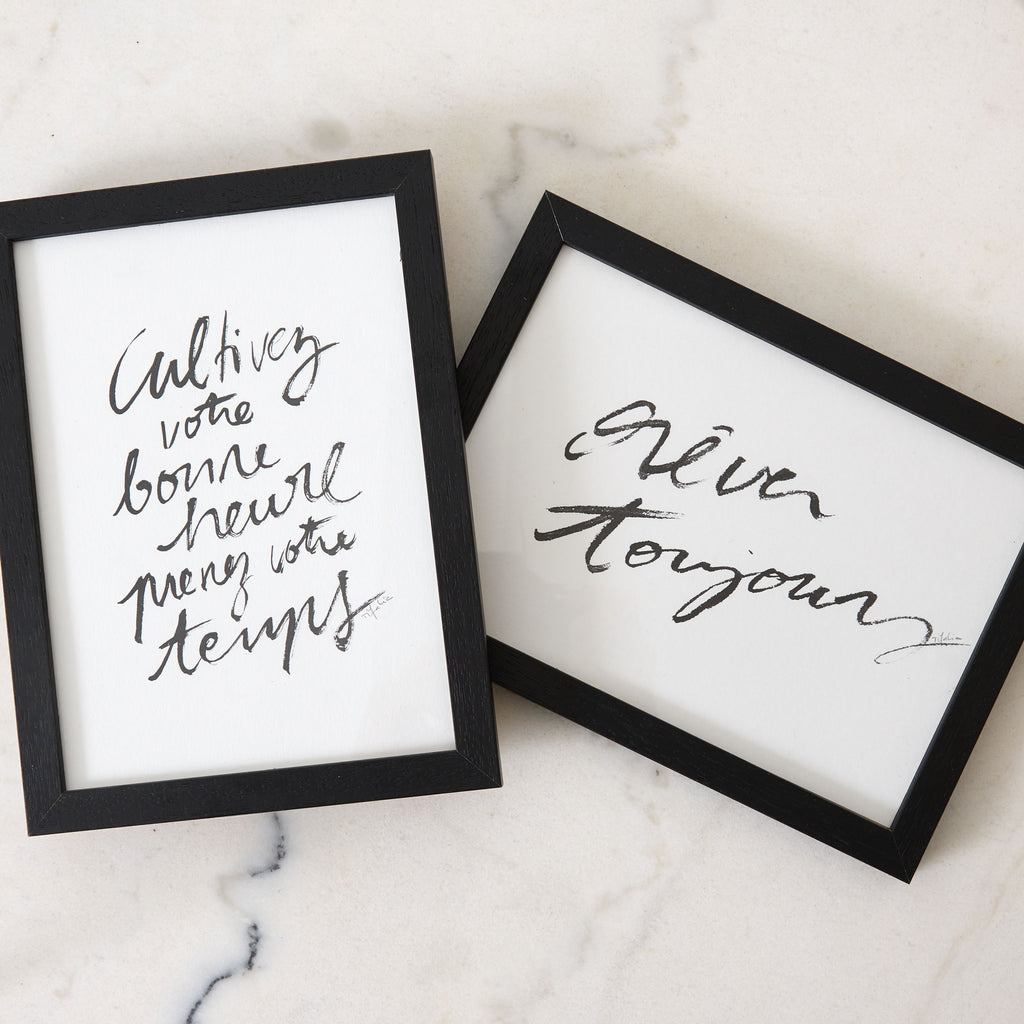 Cultivez
votre
bonne
heure
prenez votre
temps
rêver
toujours